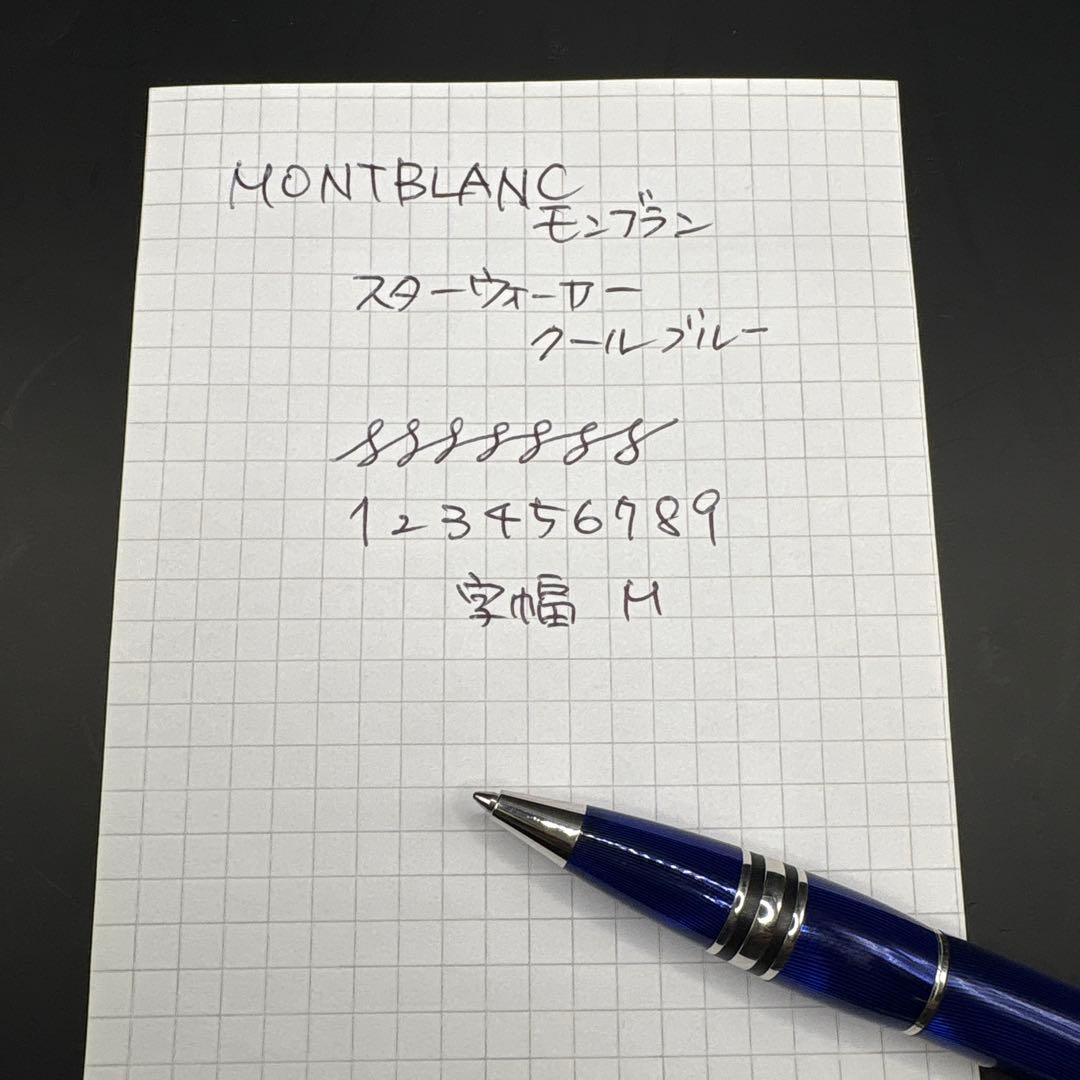 MONTBLANC
モンブラン
スターウォーカー
クールブルー
8888888
123456789
字幅 M